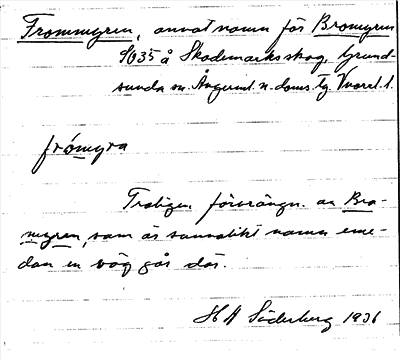 Frommyren, annat namn för Bromyren
S635 å Skademarks skog, Grund-
sunda sn. Ångerml. n. doms. tg. Vvarel. l.
frómyra
Troligen förvrängn. av Bro-
myren, som är sannolikt namn eme-
dan en väg går där.
H A Söderberg 1931